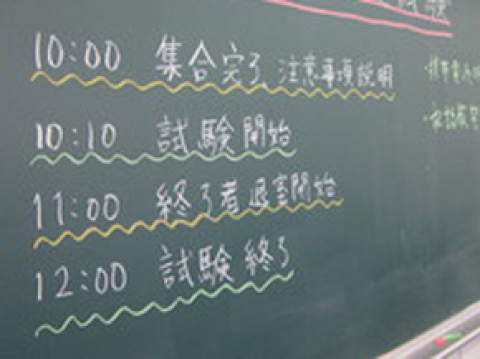 試験
10:00 集合完了、注意事項説明
10:10 試験開始
11:00 終了者退室開始
12:00 試験終了